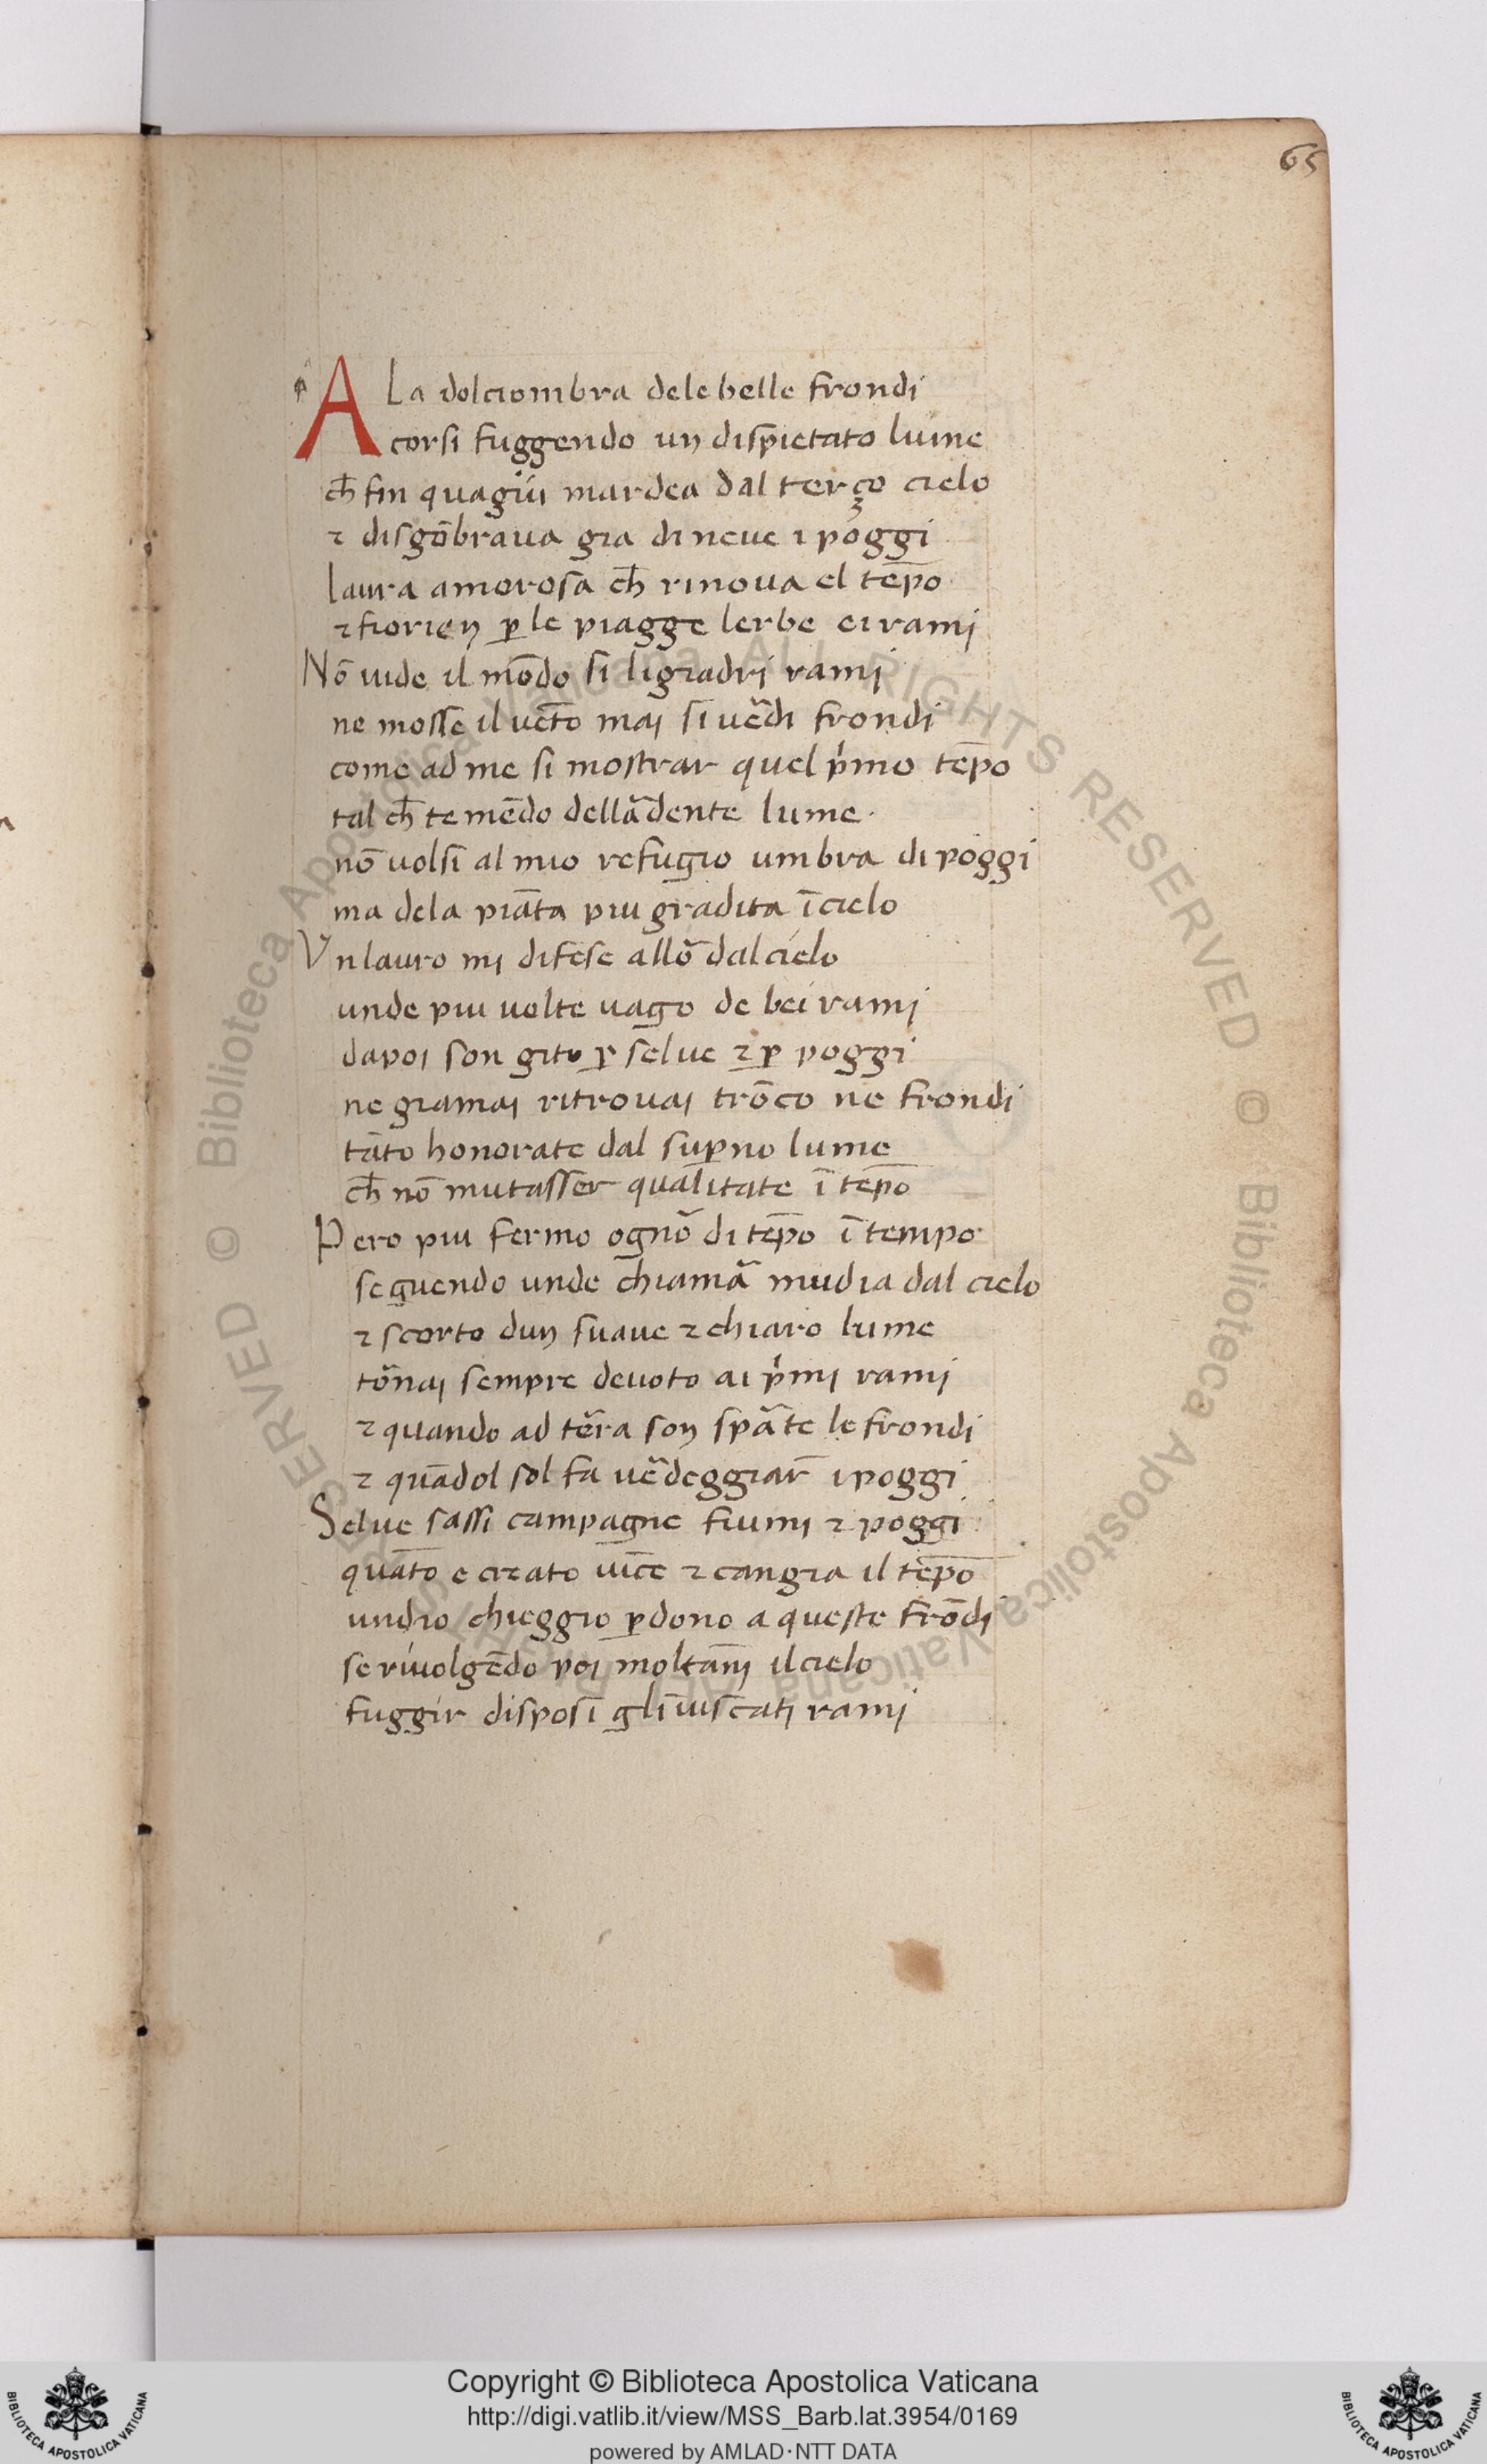 65
ALa dolciombra dele belle frondi
corsi fuggendo un dispietato lume
ch̄ fin quagiu mardea dal terço cielo
⁊ disgōbraua gia di neue i poggi
laura amorosa ch̄ rinoua el tēpo
⁊ fiorien ꝑ le piagge lerbe ei rami
Nō uide il mōdo si ligiadri rami
ne mosse il uēto mai si uẽdi frondi
come ad me si mostrar quel p̓mo tēpo
tal ch̄ temēdo dellãdente lume.
nō uolsi al mio refugio umbra di poggi
ma dela piāta piu gradita ī cielo
Vn lauro mi difese allõ dal cielo
unde piu uolte uago de bei rami
dapoi son gito ꝑ selue ⁊ ꝑ poggi
ne giamai ritrouai trōco ne frondi
tāto honorate dal suꝑno lume
ch̄ nō mutasser qualitate ī tēpo
Pero piu fermo ognõ di tēpo ī tempo
seguendo unde chiamã mudia dal cielo
⁊ scorto dun suaue ⁊ chiaro lume
tõnai sempre deuoto ai p̓mi rami
⁊ quando ad tẽra son spãte le frondi
⁊ quādol sol fa uẽdeggiar̄ i poggi
Selue sassi campagne fiumi ⁊ poggi
quāto e creato uīce ⁊ cangia il tēpo
undio chieggio ꝑdono a queste frōdi
se riuolgēdo poi moltām il cielo
fuggir disposi glī uiscati rami
Copyright © Biblioteca Apostolica Vaticana
http://digi.vatlib.it/view/MSS_Barb.lat.3954/0169
powered by AMLAD·NTT DATA
BIBLIOTECA APOSTOLICA VATICANA
BIBLIOTECA APOSTOLICA VATICANA
© Biblioteca Apostolica Vaticana ALL RIGHTS RESERVED
© Biblioteca Apostolica Vaticana ALL RIGHTS RESERVED